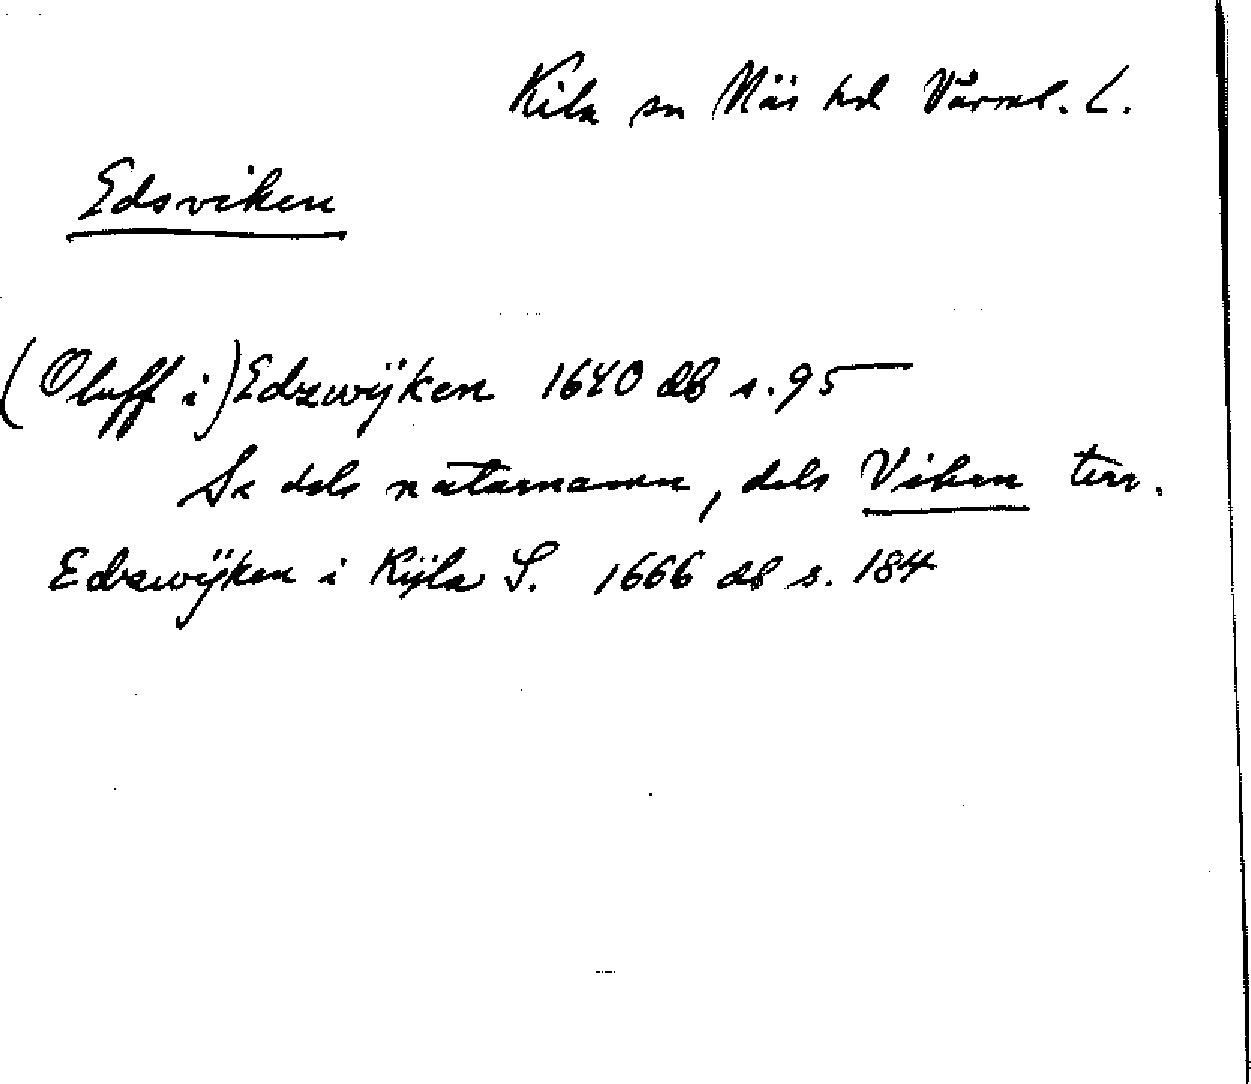 Kila sn Näs hd Värml. L.
Edsviken
(Oluff i) Edzwijken 1640 db s. 95
Se dels naturnamn, dels Viken terr.
Edzwijken i Kijla S. 1666 db s. 184